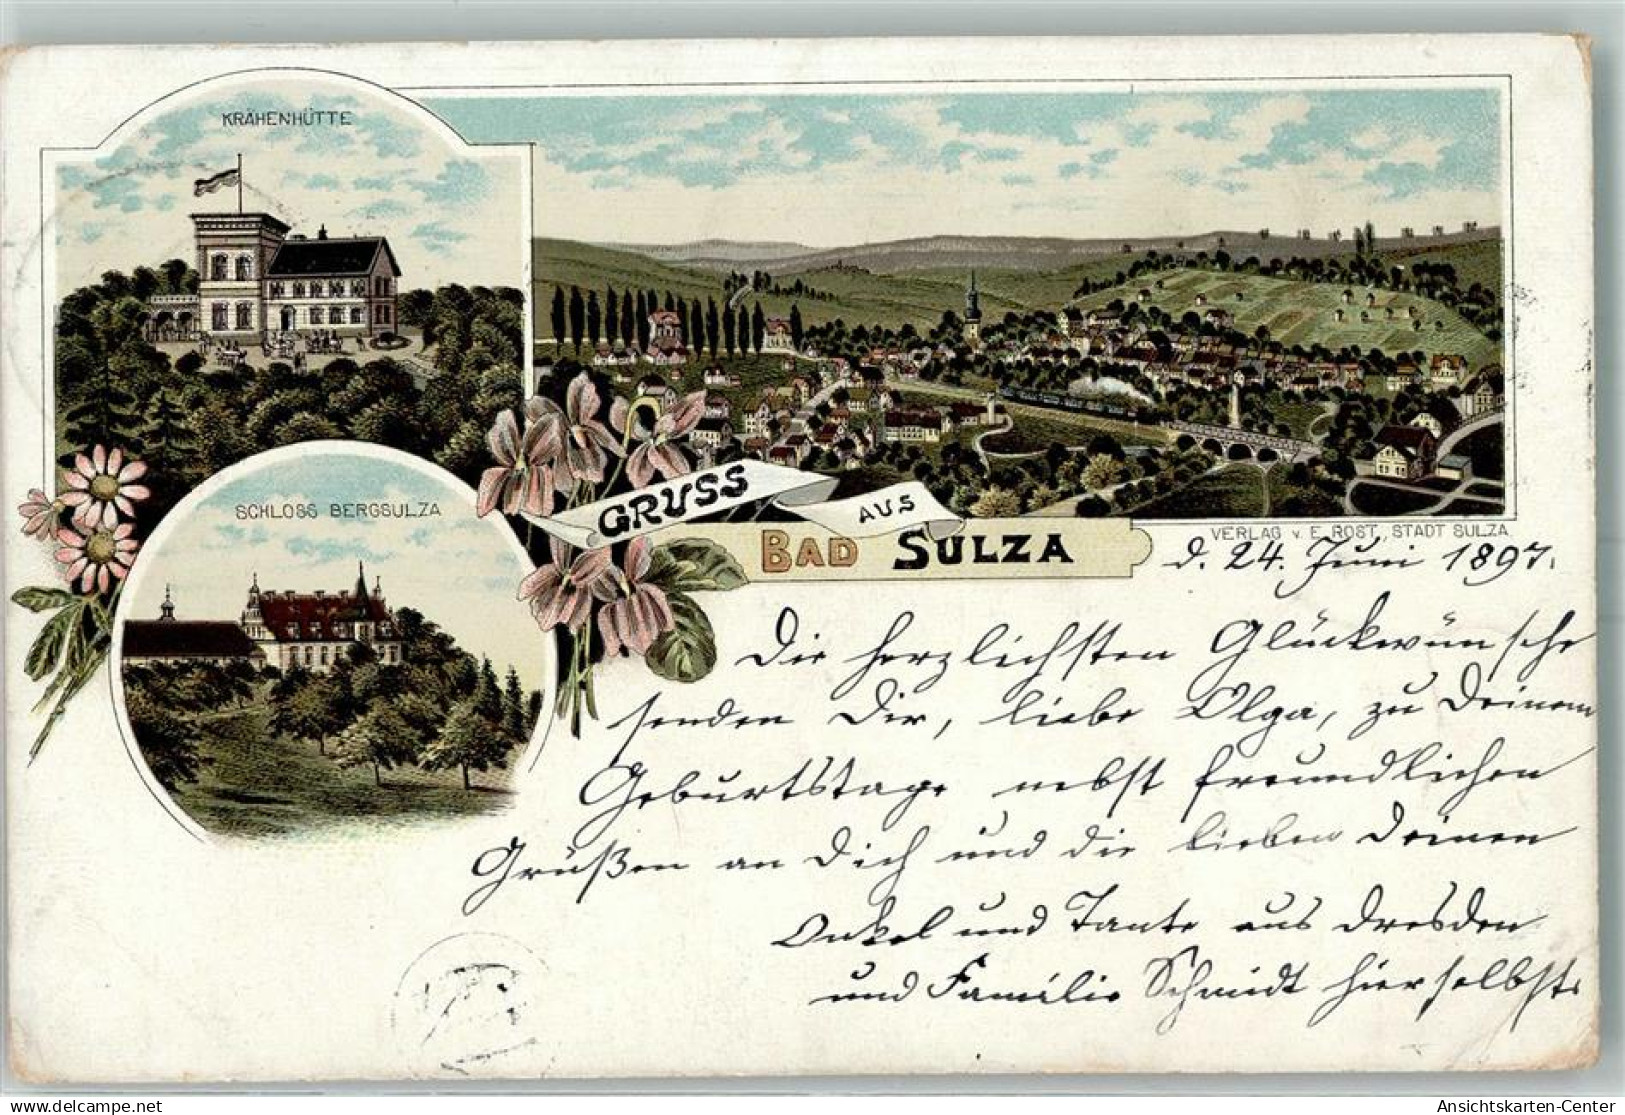 KRÄHENHÜTTE
SCHLOSS BERGSULZA
GRUSS
AUS
BAD SULZA
VERLAG v. E. ROST, STADT SULZA
d. 24. Juni 1897.
Die herzlichsten Glückwünsche
senden Dir, liebe Olga, zu Deinem
Geburtstage nebst freundlichen
Grüßen an Dich und die lieben Deinen
Onkel und Tante aus Dresden
und Familie Schmidt hierselbst.
delcampe.net
Ansichtskarten-Center